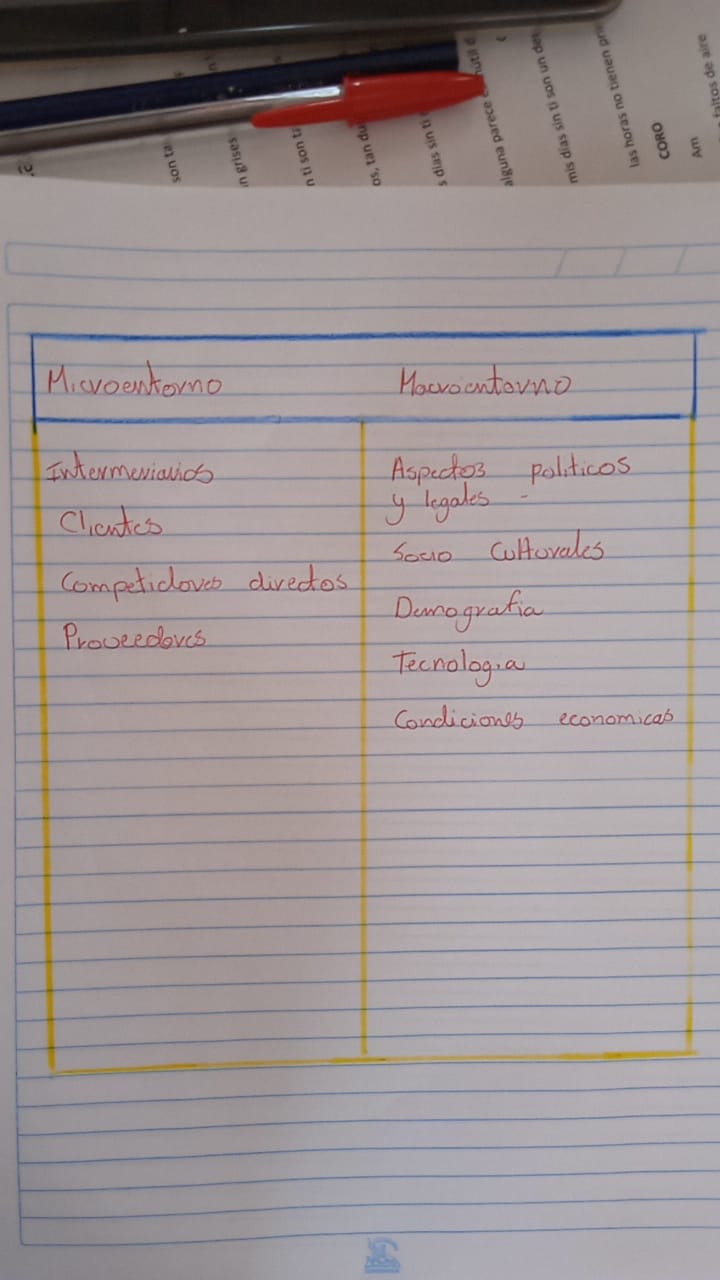 son ta
n grises
n ti son tr
os, tan du
s dias sin ti
alguna parece
mis dias sin ti son un des
las horas no tienen pri
CORO
Am
tros de aire
Microentorno
Macroentorno
Intermeriarios
Clientes
Competidores directos
Proveedores
Aspectos politicos
y legales -
Socio Culturales
Demografia
Tecnologia
Condiciones economicas